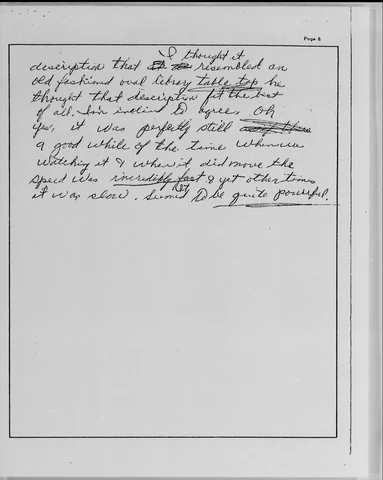 Page 8
I thought it
description that resembled an
old fashioned oval library table top he
thought that description fit the best
of all. I'm inclined to agree. Oh
yes, it was perfectly still
a good while of the time when we
watching it & when it did move the
speed was incredibly fast & yet other times
it was slow. It seemed to be quite powerful.